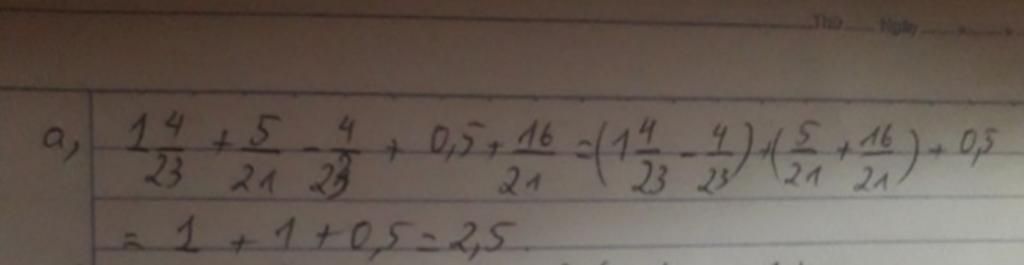 Thứ Ngày
a, 1 4/23 + 5/21 - 4/23 + 0,5 + 16/21 = (1 4/23 - 4/23) + (5/21 + 16/21) + 0,5
= 1 + 1 + 0,5 = 2,5